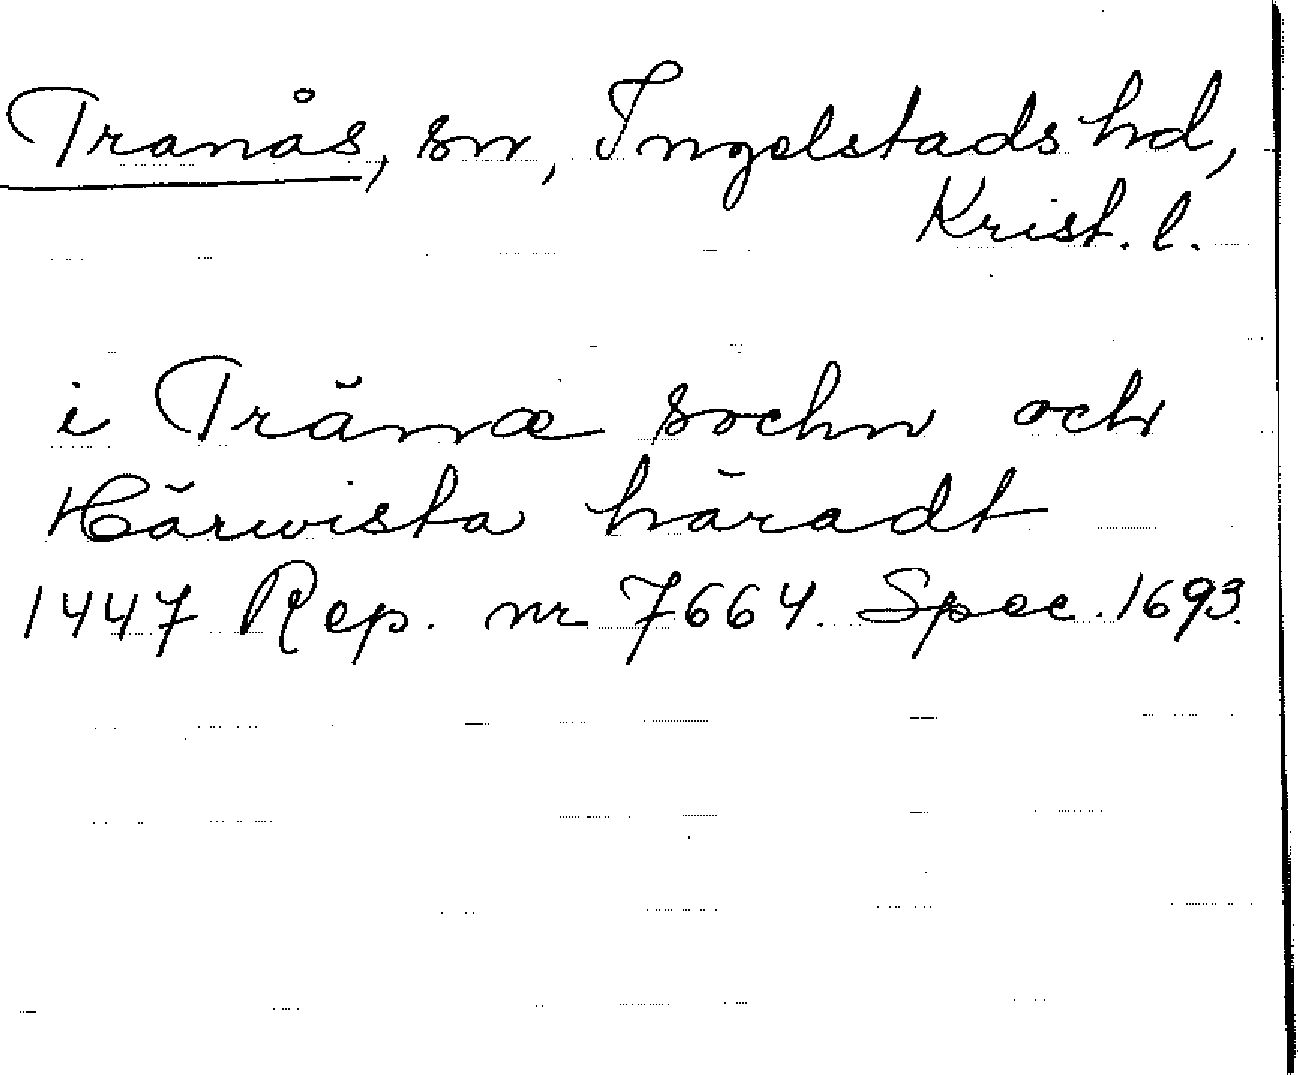 Tranås, sn, Ingelstads hd,
Krist. l.
i Trănæ sochn och
Hărwista hăradt
1447 Rep. nr 7664. Spec. 1693.